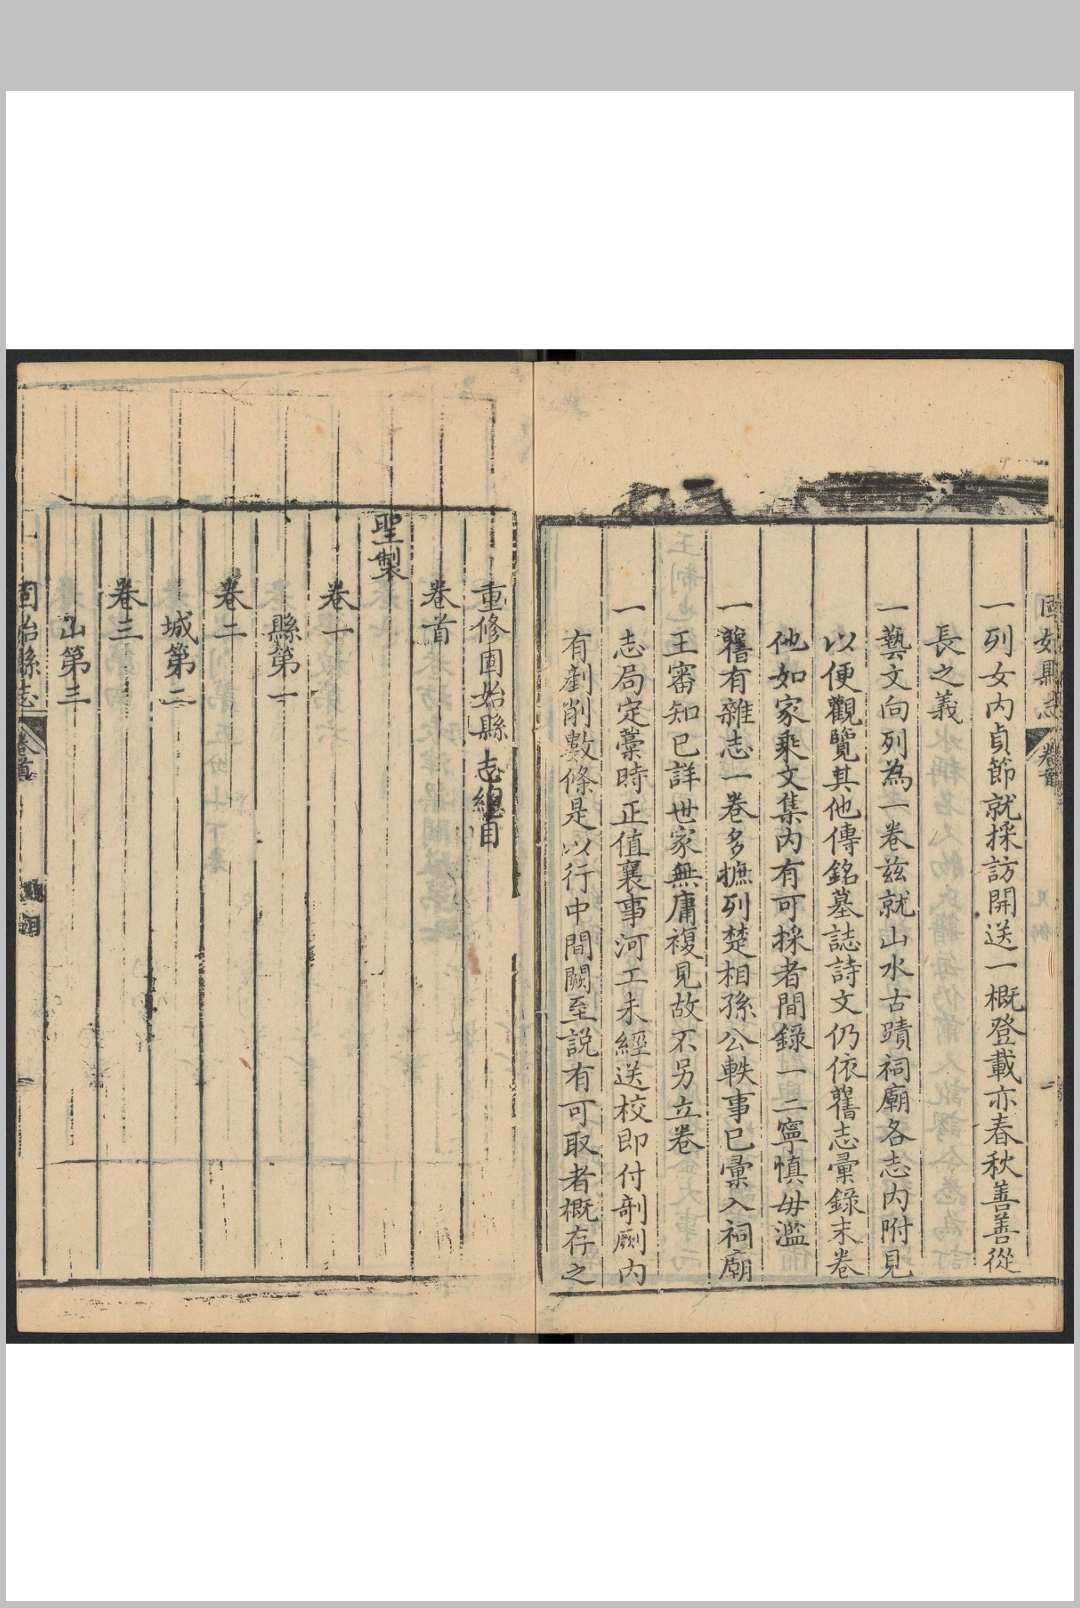 固始縣志 卷首 凡例 一
一列女內貞節就採訪開送一概登載亦春秋善善從
長之義
一藝文向列為一卷茲就山水古蹟祠廟各志內附見
以便觀覽其他傳銘墓誌詩文仍依舊志彙錄末卷
他如家乘文集內有可採者間錄一二寧慎毋濫
一舊有雜志一卷多摭列楚相孫公軼事已彙入祠廟
王審知已詳世家無庸複見故不另立卷
一志局定藁時正值襄事河工未經送校即付剞劂內
有剷削數條是以行中間闕至說有可取者概存之
重修固始縣志總目
卷首
聖製
卷一
縣第一
卷二
城第二
卷三
山第三
固始縣志 卷首